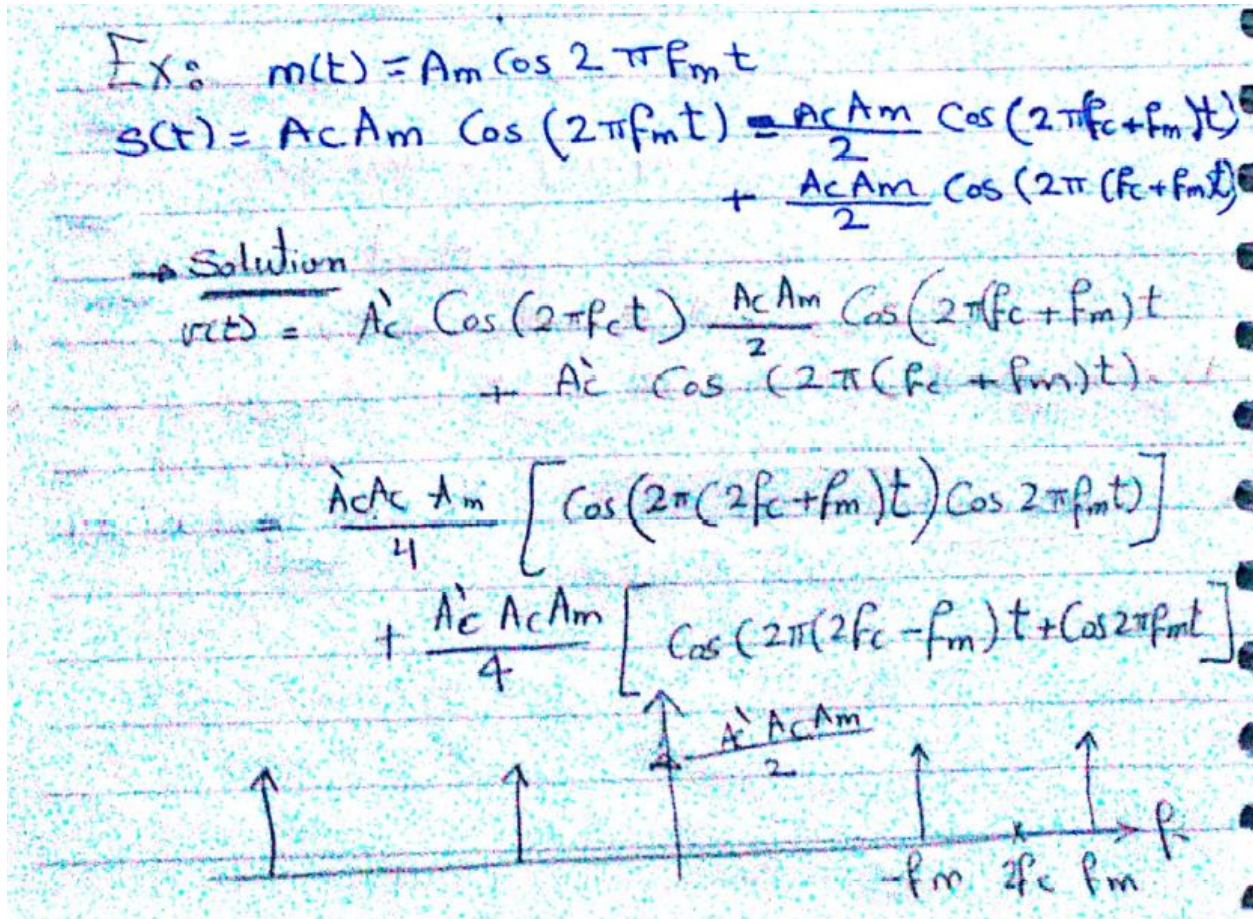 Ex: m(t) = Am Cos 2 π fm t
s(t) = Ac Am Cos (2πfmt) = AcAm/2 Cos (2πfc+fm)t)
+ AcAm/2 Cos (2π (fc+fmt)
→ Solution
v(t) = Àc Cos (2πfct) AcAm/2 Cos (2π(fc + fm)t
+ Àc Cos (2π(fc + fm)t)
= ÀcAc Am/4 [Cos(2π(2fc+fm)t) Cos 2πfmt)]
+ Àc AcAm/4 [Cos (2π(2fc - fm)t + Cos2πfmt]
À AcAm/2
f
-fm 2fc fm